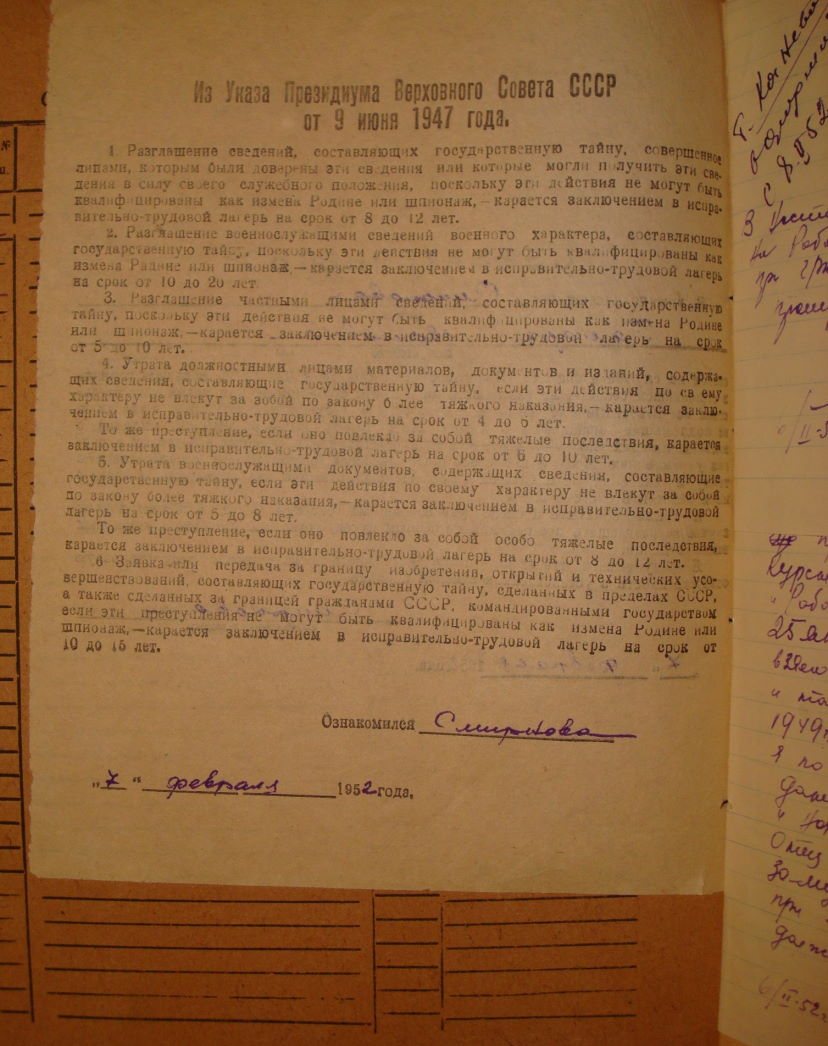 Из Указа Президиума Верховного Совета СССР
от 9 июня 1947 года.
1. Разглашение сведений, составляющих государственную тайну, совершенное
лицами, которым были доверены эти сведения или которые могли получить эти све-
дения в силу своего служебного положения, поскольку эти действия не могут быть
квалифицированы как измена Родине или шпионаж,—карается заключением в испра-
вительно-трудовой лагерь на срок от 8 до 12 лет.
2. Разглашение военнослужащими сведений военного характера, составляющих
государственную тайну, поскольку эти действия не могут быть квалифицированы как
измена Родине или шпионаж,—карается заключением в исправительно-трудовой лагерь
на срок от 10 до 20 лет.
3. Разглашение частными лицами сведений, составляющих государственную
тайну, поскольку эти действия не могут быть квалифицированы как измена Родине
или шпионаж,—карается заключением в исправительно-трудовой лагерь на срок
от 5 до 10 лет.
4. Утрата должностными лицами материалов, документов и изданий, содержа-
щих сведения, составляющие государственную тайну, если эти действия по своему
характеру не влекут за собой по закону более тяжкого наказания,—карается заклю-
чением в исправительно-трудовой лагерь на срок от 4 до 6 лет.
То же преступление, если оно повлекло за собой тяжелые последствия, карается
заключением в исправительно-трудовой лагерь на срок от 6 до 10 лет.
5. Утрата военнослужащими документов, содержащих сведения, составляющие
государственную тайну, если эти действия по своему характеру не влекут за собой
по закону более тяжкого наказания,—карается заключением в исправительно-трудовой
лагерь на срок от 5 до 8 лет.
То же преступление, если оно повлекло за собой особо тяжелые последствия,
карается заключением в исправительно-трудовой лагерь на срок от 8 до 12 лет.
6. Заявка или передача за границу изобретения, открытий и технических усо-
вершенствований, составляющих государственную тайну, сделанных в пределах СССР,
а также сделанных за границей гражданами СССР, командированными государством
если эти преступления не могут быть квалифицированы как измена Родине или
шпионаж,—карается заключением в исправительно-трудовой лагерь на срок от
10 до 15 лет.
Ознакомился Смирнова
"7" февраля 1952 года.
1949
6/II-52